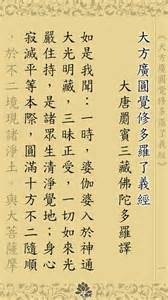 《大方廣圓覺修多羅了義經》
大方廣圓覺修多羅了義經
大唐罽賓三藏佛陀多羅譯
如是我聞：一時，婆伽婆入於神通
大光明藏，三昧正受，一切如來光
嚴住持，是諸眾生清淨覺地；身心
寂滅平等本際，圓滿十方不二隨順
，於不二境現諸淨土。與大菩薩摩